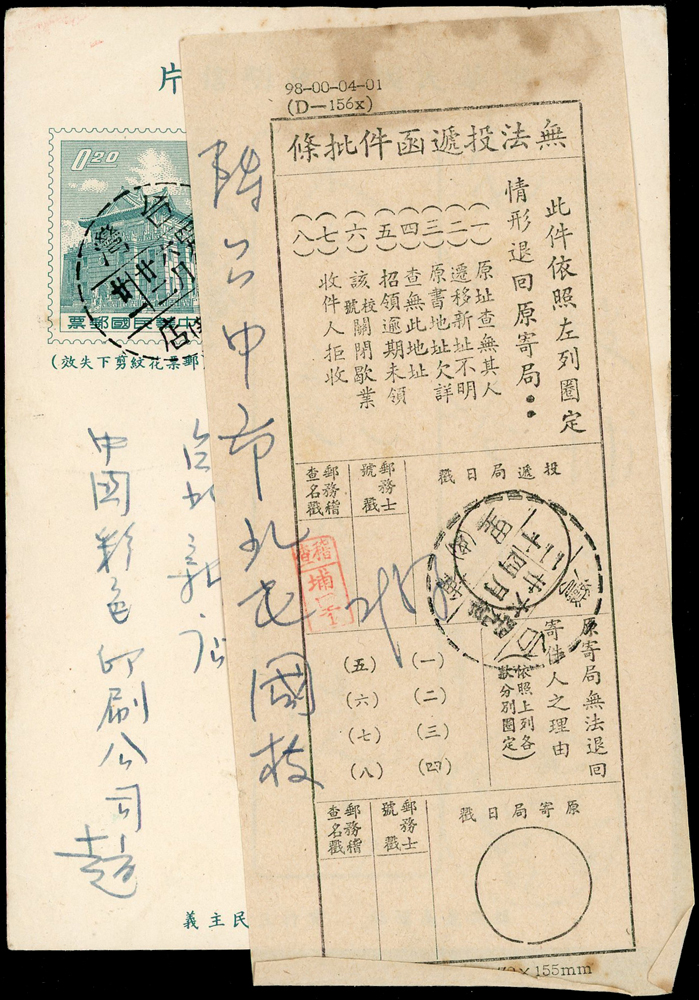 98-00-04-01
(D-156x)
無法投遞函件批條
此件依照左列圈定
情形退回原寄局：
(一)原址查無其人
(二)遷移新址不明
(三)原書地址欠詳
(四)查無此地址
(五)招領逾期未領
(六)該號校關閉歇業
(七)收件人拒收
(八)
投遞局日戳
郵務士
號戳
郵務稽
查名戳
稽查
埔
原寄局無法退回
寄件人之理由
(依照上列各
款分別圈定)
(一)
(二)
(三)
(四)
(五)
(六)
(七)
(八)
原寄局日戳
郵務士
號戳
郵務稽
查名戳
×155mm
台中市北屯國校
片
0.20
中華民國郵票
郵票花紋剪下失效)
台灣
店
台北新店
中國彩色印刷公司趙
民主義